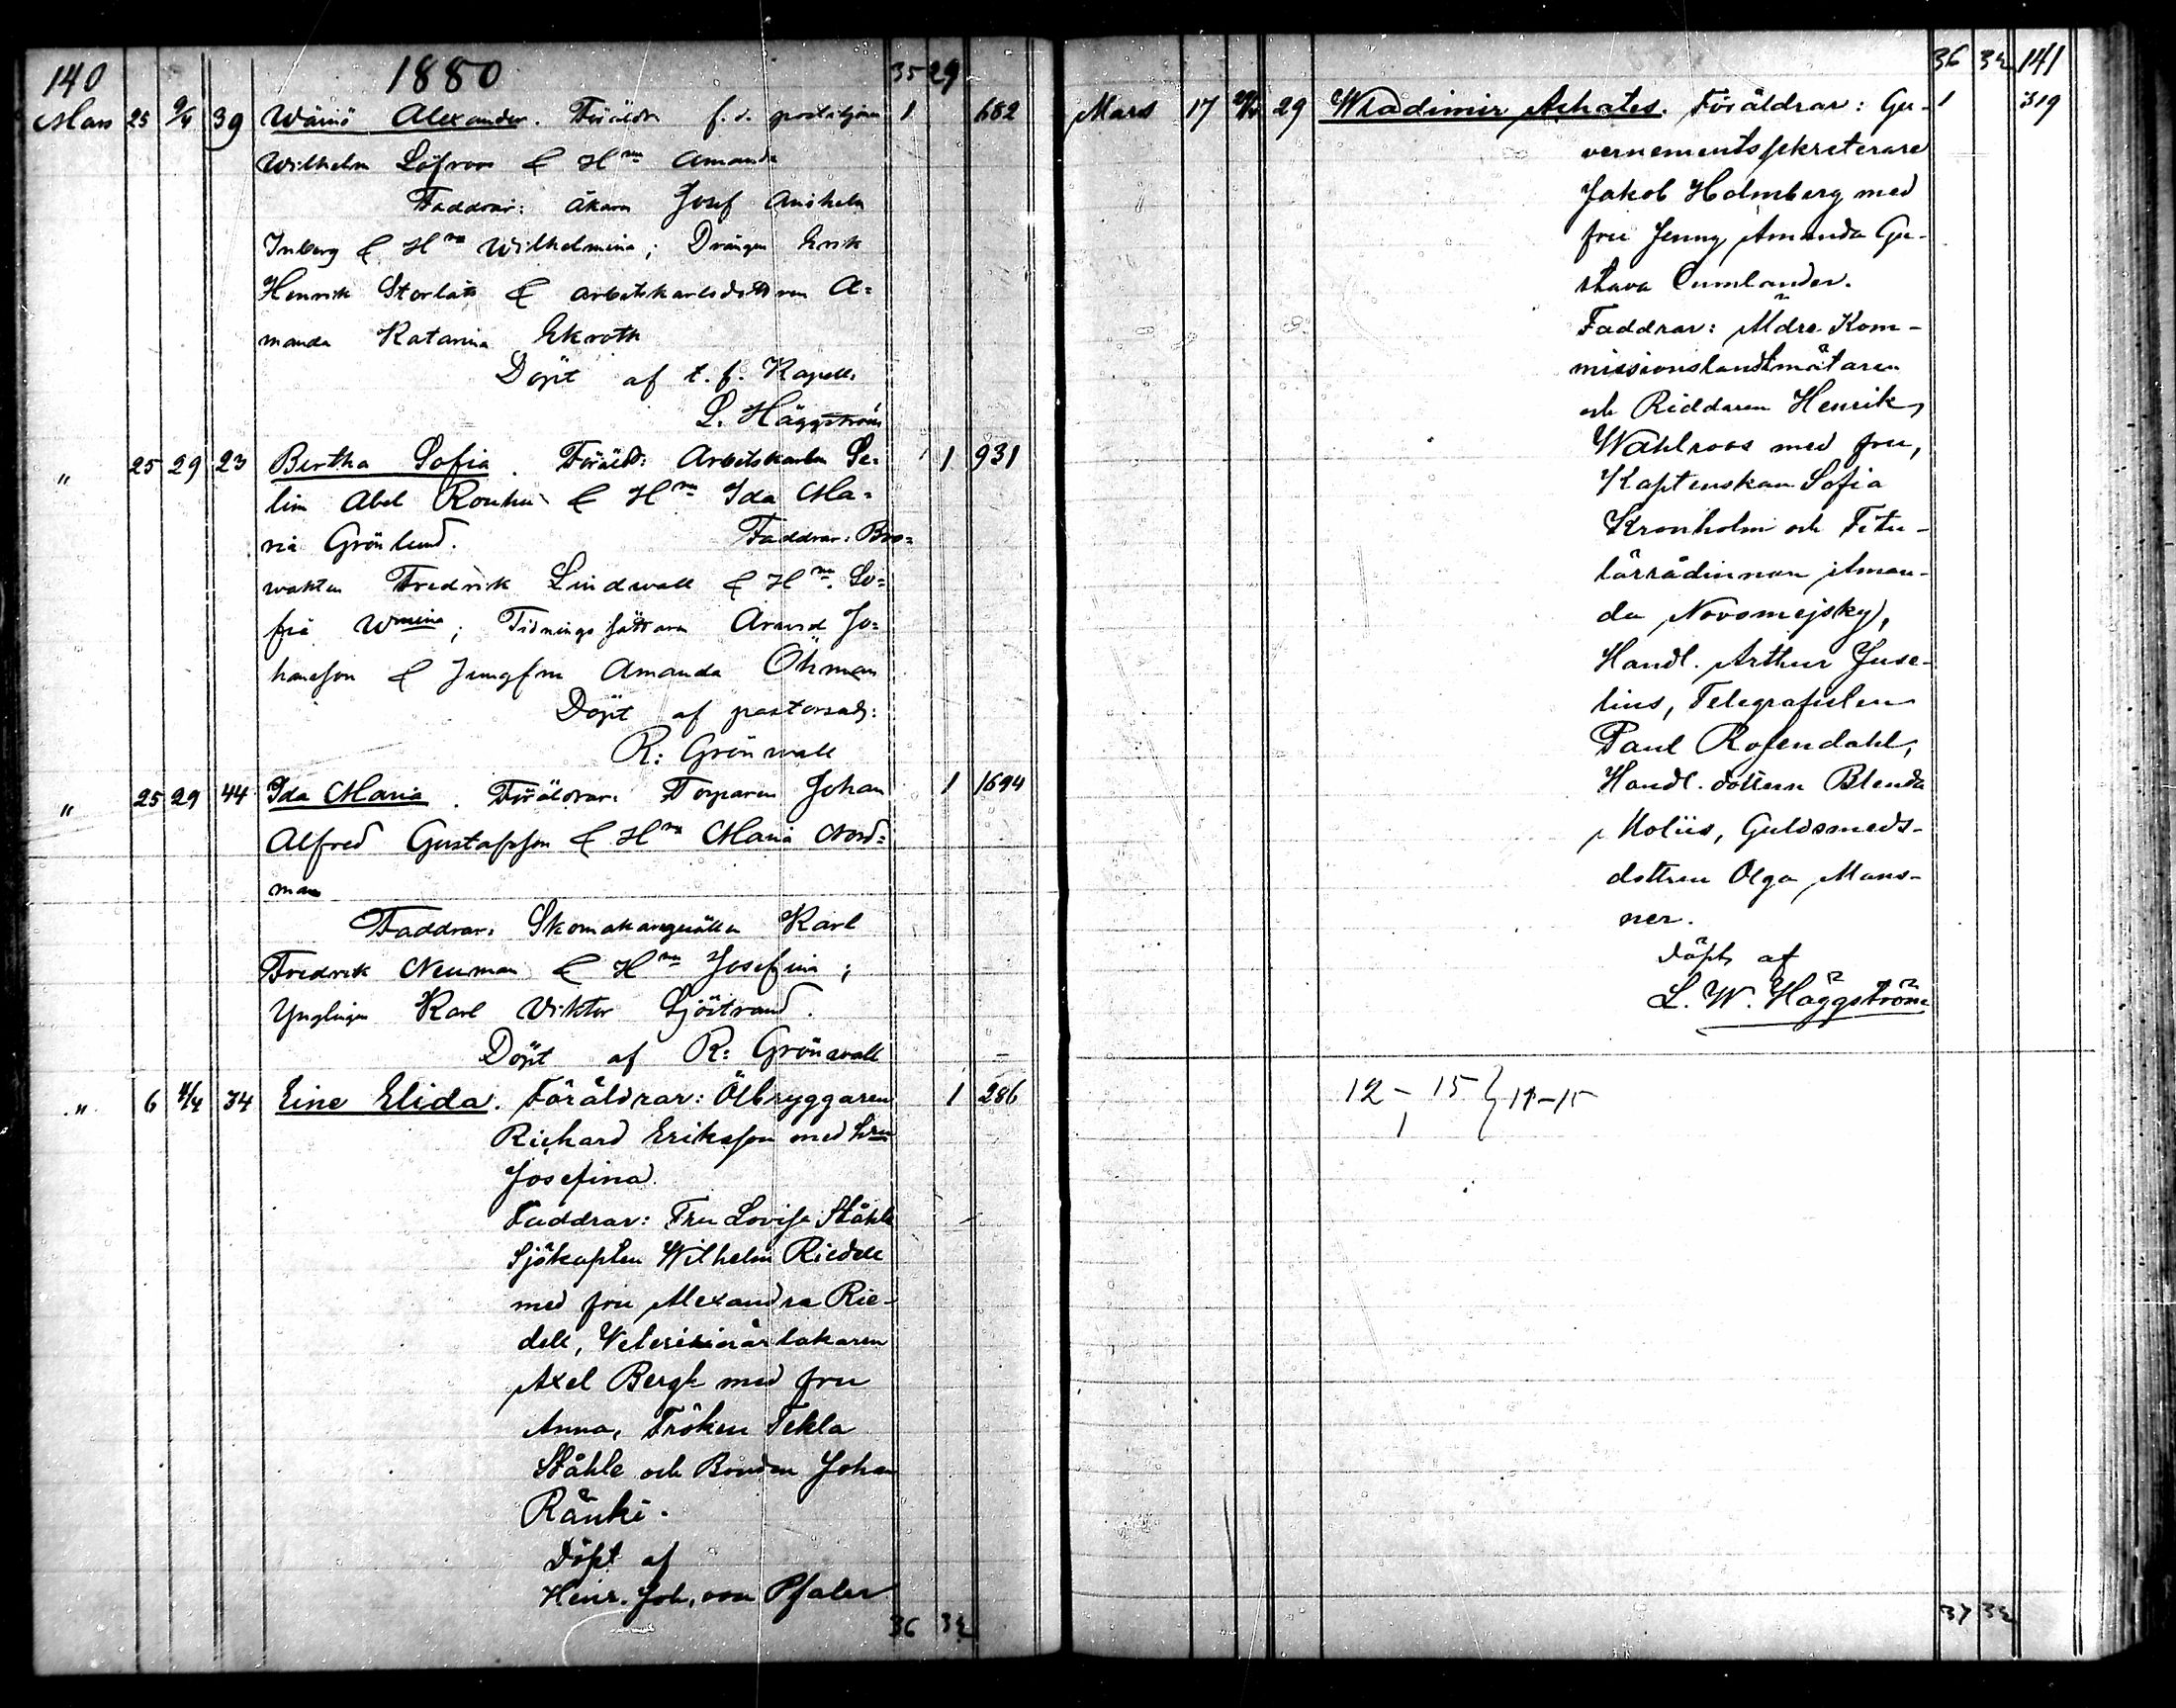 140 1880 35 29
Mars 25 9/4 39 Wäinö Alexander. Föräldr f. d. postiljon 1 682
Wilhelm Löfroos & Hru Amanda
Faddrar: Åkaren Josef Anshelm
Inberg & Hru Wilhelmina; Drängen Erik
Henrik Storlåts & arbetskarlsdottren A=
manda Katarina Ekroth
Döpt af t. f. Kapell.
L. Häggström
" 25 29 23 Bertha Sofia. Föräld: Arbetskarlen Se= 1 931
lim Abel Rouhu & Hru Ida Ma=
ria Grönlund. Faddrar: Bro=
vakten Fredrik Lindwall & Hru So=
fia Wmina; Tidningssättaren Arvid Jo=
hansson & Jungfrun Amanda Öhman
Döpt af pastorsadj:
R: Grönvall
" 25 29 44 Ida Maria. Föräldrar: Torparen Johan 1 1694
Alfred Gustafsson & Hru Maria Nord=
man
Faddrar: Skomakaregesällen Karl
Fredrik Neuman & Hru Josefina;
Ynglingen Karl Viktor Sjöstrand.
Döpt af R: Grönvall
" 6 4/4 34 Eine Elida. Föräldrar: Ölbryggaren 1 286
Richard Eriksson med hru
Josefina.
Faddrar: Fru Lovisa Ståhle
Sjökapten Wilhelm Riedell
med fru Alexandra Rie-
dell, Veterinärläkaren
Axel Bergh med fru
Anna, Fröken Tekla
Ståhle och Bonden Johan
Ränki.
Döpt af
Henr. Joh. von Pfaler
36 32
36 32 141
Mars 17 29 Wladimir Achates. Föräldrar: Gu- 1 319
vernementssekreterare
Jakob Holmberg med
fru Jenny Amanda Gu-
stava Cumlander.
Faddrar: Äldre Kom-
missionslandtmätaren
och Riddaren Henrik
Wahlroos med fru,
Kaptenskan Sofia
Kronholm och Titu-
lärrådinnan Aman-
da Novomejsky,
Handl. Arthur Juse-
lius, Telegrafisten
Paul Rosendahl,
Handl. dottern Blenda
Moliis, Guldsmeds-
dottren Olga Mans-
ner.
Döpt af
L. W. Häggström
12 - 15 } 11-15
1
37 32